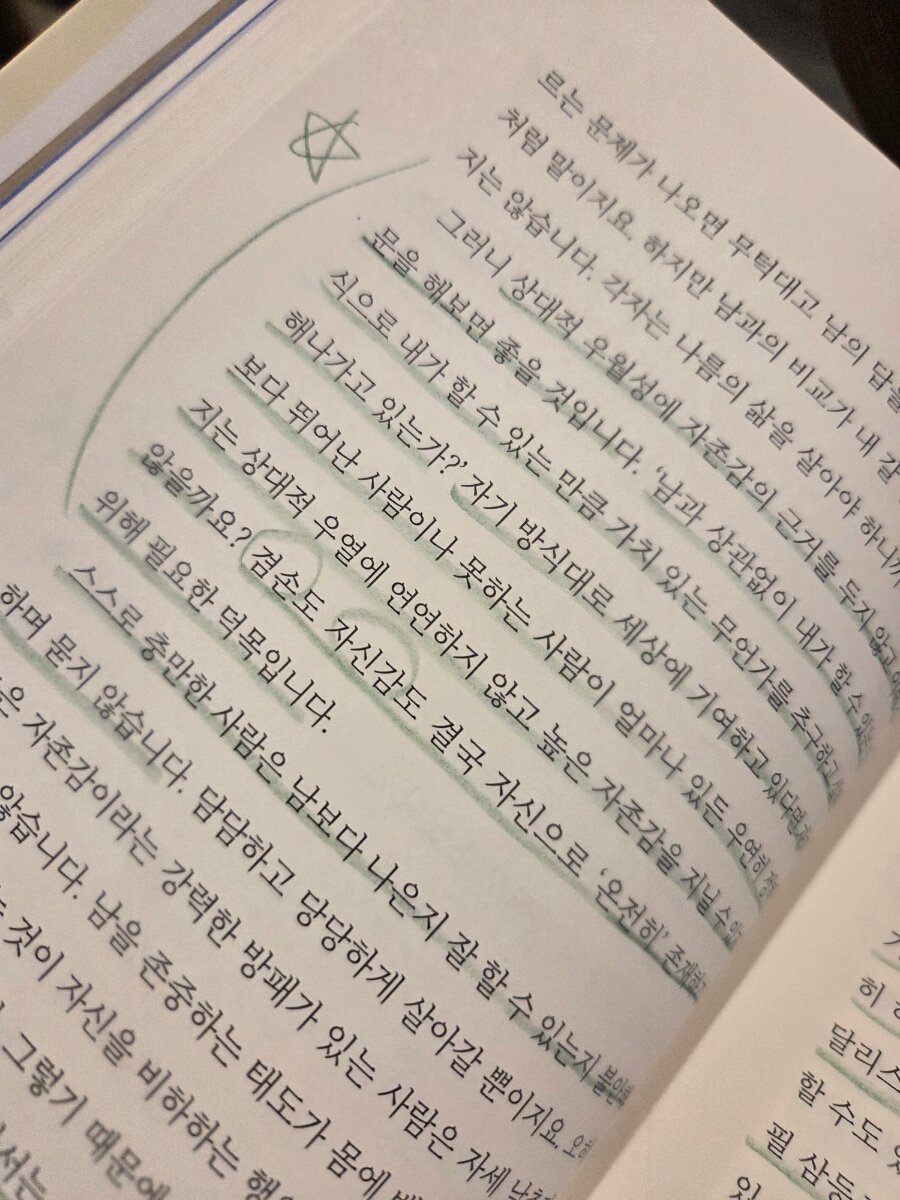 르는 문제가 나오면 무턱대고 남의 답을
처럼 말이지요. 하지만 남과의 비교가 내 갈
지는 않습니다. 각자는 나름의 삶을 살아야 하니까
그러니 상대적 우월성에 자존감의 근거를 두지 않고
문을 해보면 좋을 것입니다. '남과 상관없이 내가 할 수 있는
식으로 내가 할 수 있는 만큼 가치 있는 무언가를 추구하고
해나가고 있는가?' 자기 방식대로 세상에 기여하고 있다면
보다 뛰어난 사람이나 못하는 사람이 얼마나 있든 우연히
지는 상대적 우열에 연연하지 않고 높은 자존감을 지닐 수
않을까요? 겸손도 자신감도 결국 자신으로 '온전히' 존재하
위해 필요한 덕목입니다.
스스로 충만한 사람은 남보다 나은지 잘 할 수 있는지
하며 묻지 않습니다. 담담하고 당당하게 살아갈 뿐이지요.
은 자존감이라는 강력한 방패가 있는 사람은 자세
않습니다. 남을 존중하는 태도가 몸에
것이 자신을 비하하는
그렇기 때문에
서는
히
달리스
할 수도
필 삼